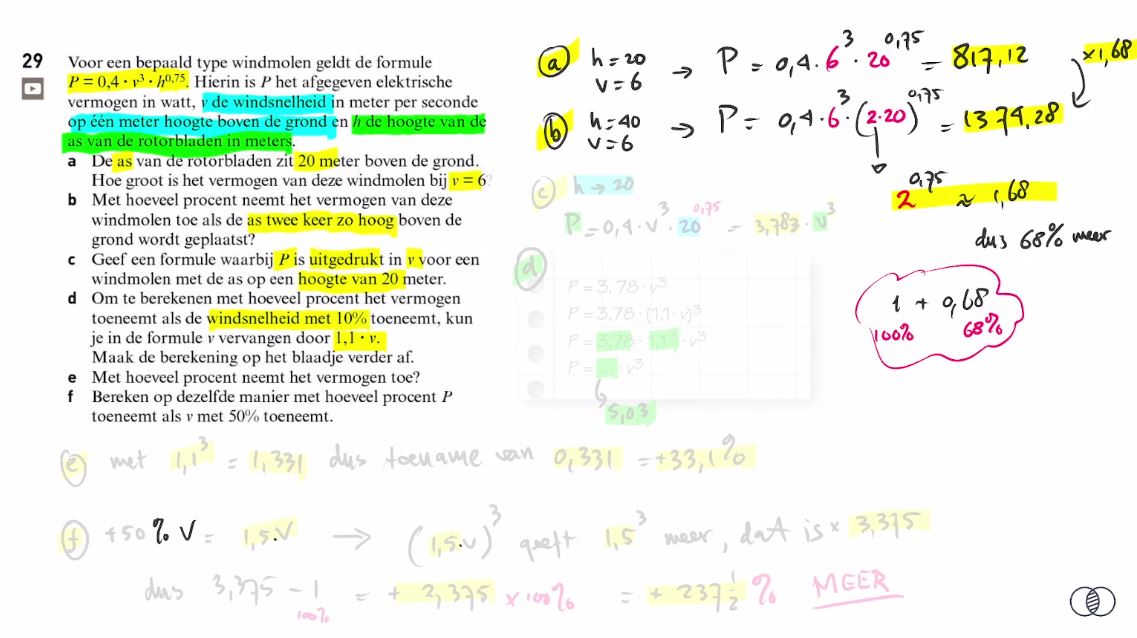 29 Voor een bepaald type windmolen geldt de formule
P = 0,4 · v³ · h^0,75. Hierin is P het afgegeven elektrische
vermogen in watt, v de windsnelheid in meter per seconde
op één meter hoogte boven de grond en h de hoogte van de
as van de rotorbladen in meters.
a De as van de rotorbladen zit 20 meter boven de grond.
Hoe groot is het vermogen van deze windmolen bij v = 6?
b Met hoeveel procent neemt het vermogen van deze
windmolen toe als de as twee keer zo hoog boven de
grond wordt geplaatst?
c Geef een formule waarbij P is uitgedrukt in v voor een
windmolen met de as op een hoogte van 20 meter.
d Om te berekenen met hoeveel procent het vermogen
toeneemt als de windsnelheid met 10% toeneemt, kun
je in de formule v vervangen door 1,1 · v.
Maak de berekening op het blaadje verder af.
e Met hoeveel procent neemt het vermogen toe?
f Bereken op dezelfde manier met hoeveel procent P
toeneemt als v met 50% toeneemt.
a h = 20 → P = 0,4 · 6³ · 20^0,75 = 817,12
v = 6
×1,68
b h = 40 → P = 0,4 · 6³ · (2·20)^0,75 = 1374,28
v = 6
2^0,75 ≈ 1,68
dus 68% meer
1 + 0,68
100% 68%
c h → 20
P = 0,4 · v³ · 20^0,75 = 3,783 · v³
d
P = 3,78 · v³
P = 3,78 · (1,1 · v)³
P = 3,78 · 1,1³ · v³
P = ... · v³
5,03
e met 1,1³ = 1,331 dus toename van 0,331 = +33,1%
f +50% v = 1,5·v → (1,5·v)³ geeft 1,5³ meer, dat is × 3,375
dus 3,375 - 1 = + 2,375 × 100% = + 237 1/2 % MEER
100%